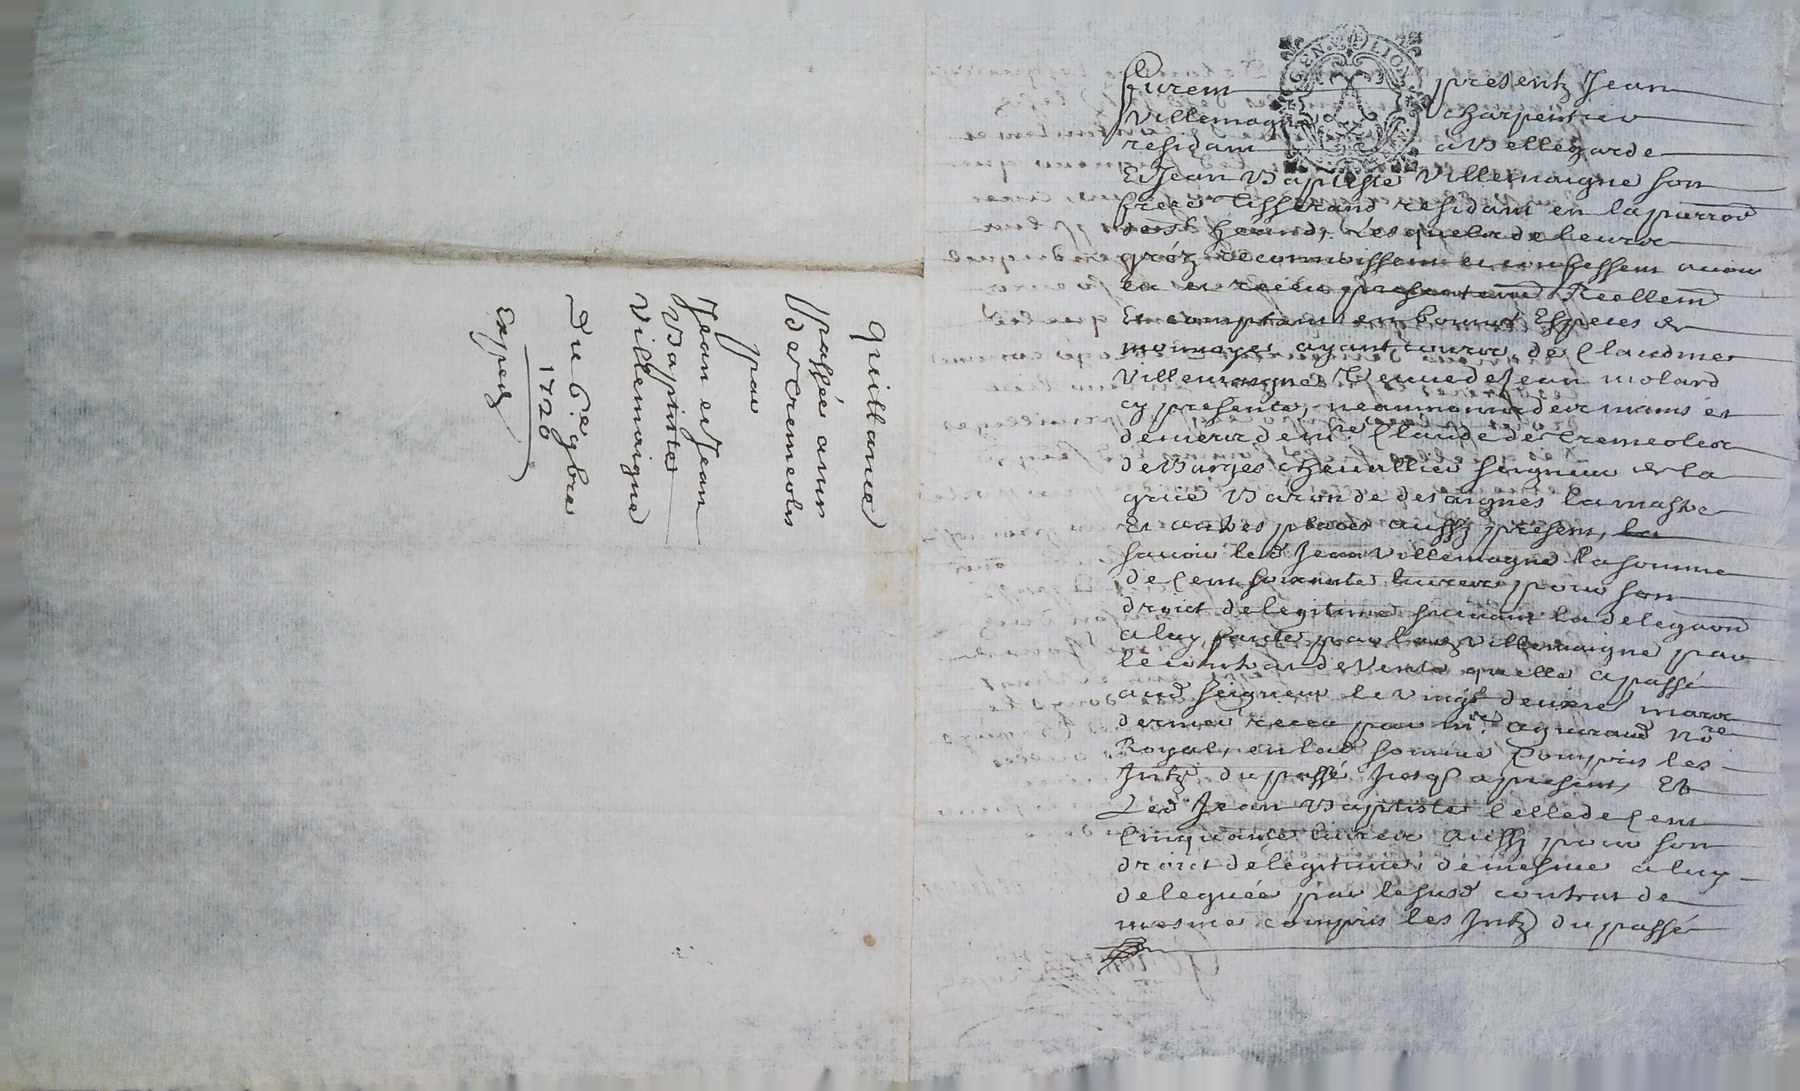 Quittance
passée a mr
De Cremeoles
par
Jean et Jean
Baptiste
Villemaigne
Du 6e 9bre
1720
Exped
GEN. LION
furem presentz Jean
Villemagne charpentier
residant a Bellegarde
Et Jean Baptiste Villemaigne son
frere Tisserand residant en la parroe
de lesquels de leurs
gréz reconnoissent et confessent avoir
eu et receu presentemt Reellemt
Et comptant en bonnes Especes de
monnoye ayant cours de Claudine
Villemaigne Veuve de Jean molard
cy presente, neanmoins des mains et
deniers de mre Claude de Cremeoles
de Barges chevallier seigneur de la
grüe Baron de desaignes la mastre
Et autres places aussy present, la
savoir led Jean Villemagne la somme
de Cent soixante livres pour son
droict de legitime suivant la delegaon
a luy faicte par lad Villemaigne par
le contrat de Vente quelle a passé
aud seigneur le vingt deuxie mars
dernier receu par me agueraud nore
Royal, en lad somme Compris les
Intz du passé Jusq a present, Et
Led Jean Baptiste Celle de Cent
Cinquante livres aussy pour son
droict de legitime de mesme a luy
deleguée par le susd contrat de
mesme compris les Intz du passé